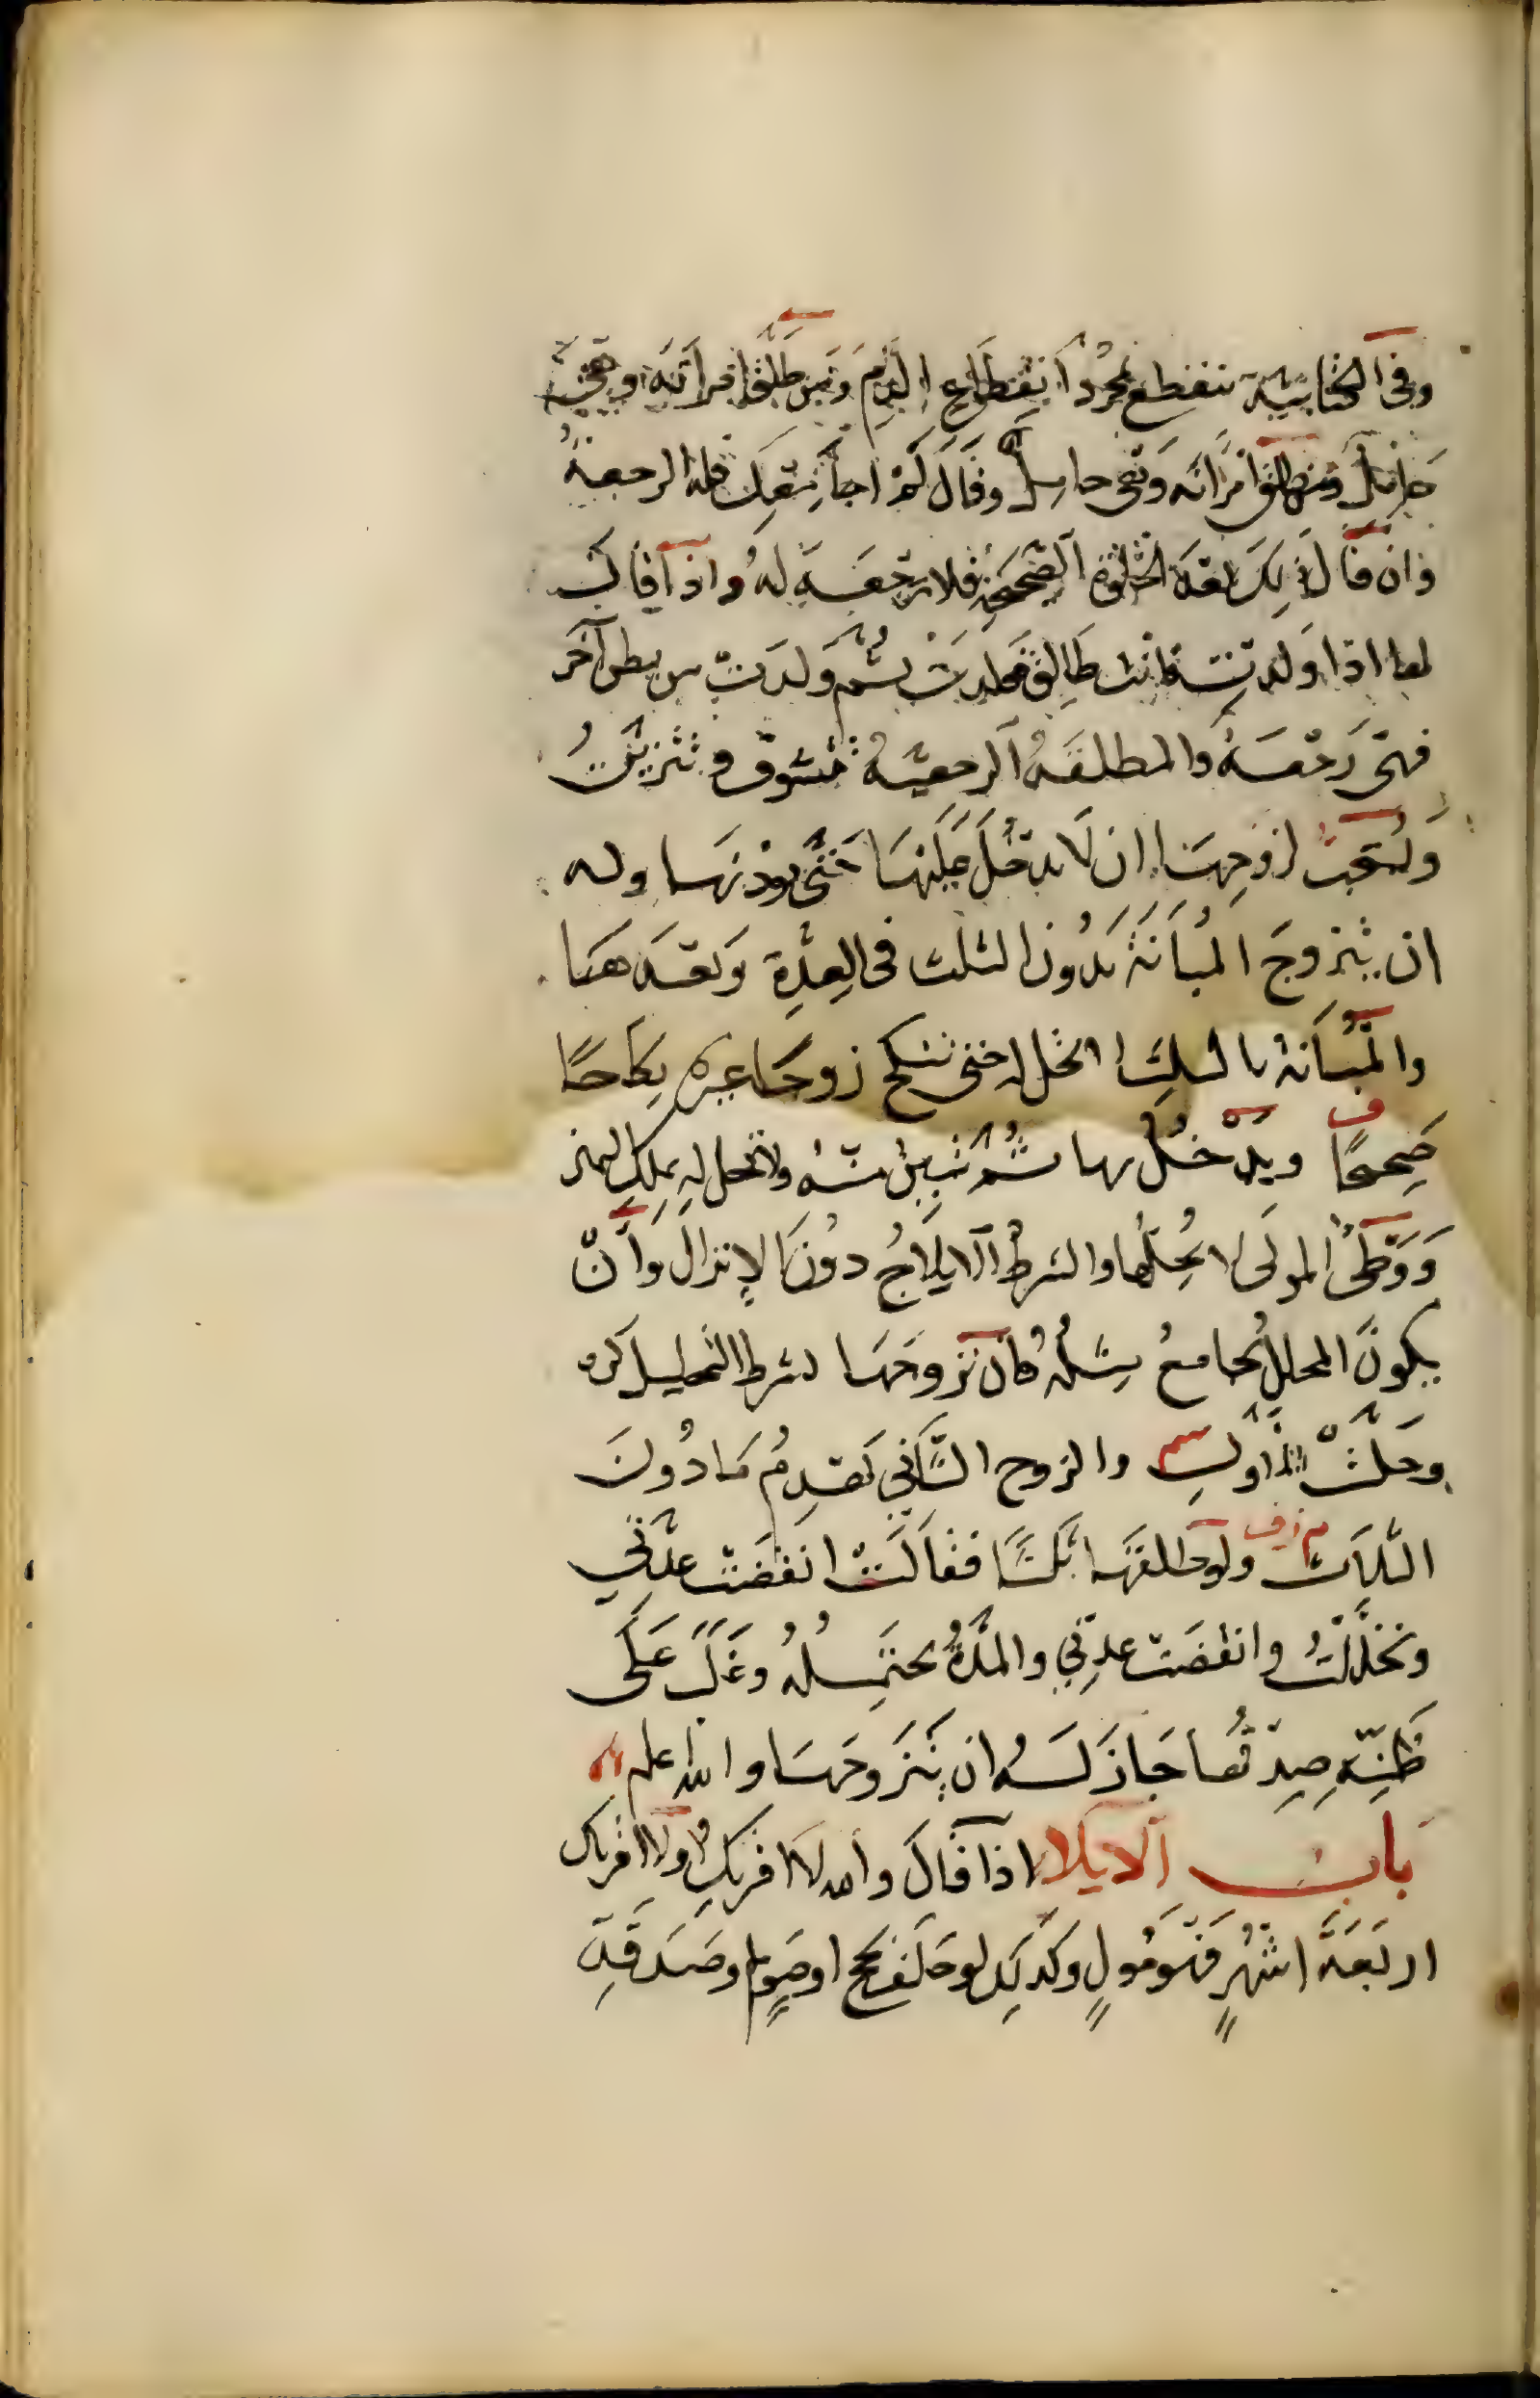 وفي الكتابية تنقطع بمجرد انقطاع الدم ومن طلق امراته وهي
حامل ومن طلق امراته وهي حامل وقال لم اجامعك فله الرجعة
وان قال ذلك بعد الخلوة الصحيحة فلا رجعة له واذا قال
لها اذا ولدت فانت طالق فولدت ثم ولدت من بطن آخر
فهي رجعة والمطلقة الرجعية تتشوف وتتزين
ويستحب لزوجها ان لا يدخل عليها حتى يوذنها وله
ان يتزوج المبانة بدون الثلث في العدة وبعدها
والمبانة بالثلث لا تحل له حتى تنكح زوجا غيره نكاحا
صحيحا ويدخل بها ثم تبين منه ولا تحل له بملك اليمين
ووطئ المولى لا يحلها والشرط الايلاج دون الانزال وان
يكون المحلل يجامع مثله فان تزوجها بشرط التحليل كره
وحلت للاول والزوج الثاني يهدم ما دون
الثلاث ولو طلقها ثلثا فقالت انقضت عدتي
وتحللت وانقضت عدتي والمدة تحتمله وغلب على
ظنه صدقها جاز له ان يتزوجها والله اعلم
باب الايلا اذا قال والله لا اقربك او لا اقربك
اربعة اشهر فهو مول وكذلك لو حلف بحج او صوم او صدقة